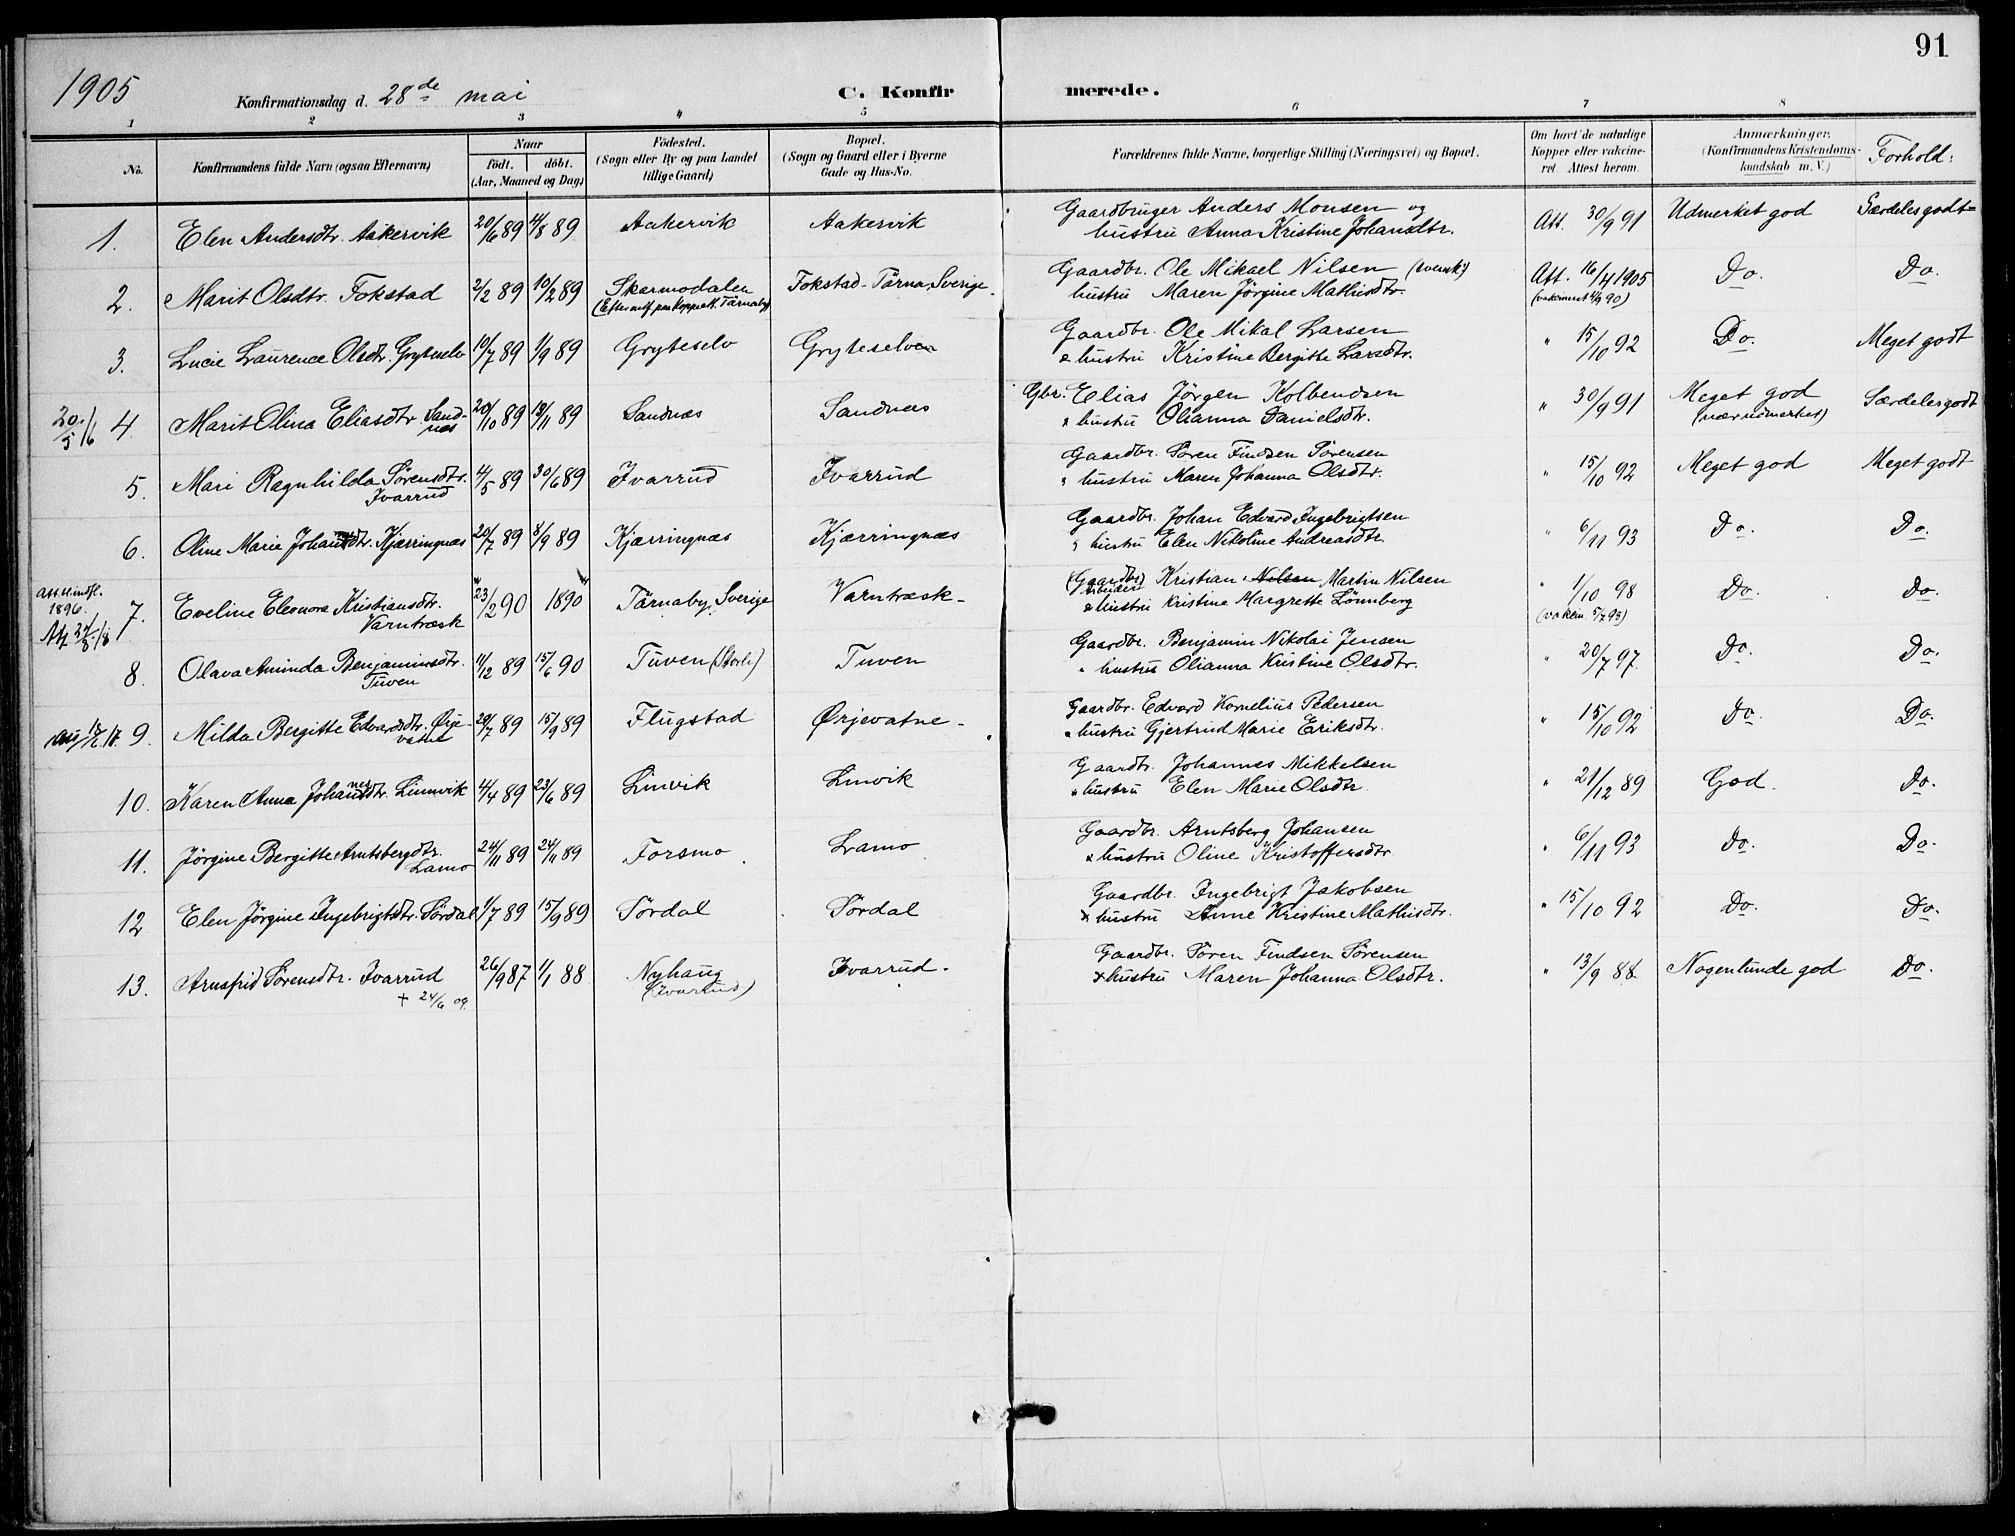 91
1905 Konfirmationsdag d. 28de mai C. Konfirmerede.
1 2 3 4 5 6 7 8
No. Konfirmandens fulde Navn (ogsaa Efternavn) Naar født. døbt. (Aar, Maaned og Dag) Fødested. (Sogn eller By og paa Landet tillige Gaard) Bopæl. (Sogn og Gaard eller i Byerne Gade og Hus-No. Forældrenes fulde Navne, borgerlige Stilling (Næringsvei) og Bopæl. Om havt de naturlige Kopper eller vakcineret. Attest herom. Anmærkninger. (Konfirmandens Kristendomskundskab m. V.) Forhold:
1. Elen Andersdtr. Aakervik 20/6 89 4/8 89 Aakervik Aakervik Gaardbruger Anders Monsen og
hustru Anna Kristine Johansdtr. Att. 30/9 91 Udmerket god Særdeles godt
2. Marit Olsdtr. Fokstad 2/2 89 10/2 89 Skarmodalen Fokstad - Tärna, Sverige. Gaardbr. Ole Mikael Nilsen (svensk)
hustru Maren Jörgine Mathisdtr. Att. 16/4 1905 Do. Do.
3. Lucie Laurence Olsdtr. Grytselv 10/7 89 1/9 89 Gryteselv Gryteselven Gaardbr. Ole Mikal Larsen
& hustru Kristine Bergitte Larsdtr. " 15/10 92 Do. Meget godt
20/5 16 4. Marit Olina Eliasdtr. Sandnæs 20/10 89 18/11 89 Sandnæs Sandnæs Gbr. Elias Jörgen Kolbendsen
" hustru Olianna Danielsdtr. " 30/9 91 Meget god Særdeles godt
(nær udmerket)
5. Mari Ragnhilda Sörensdtr.
Ivarrud 4/5 89 30/6 89 Ivarrud Ivarrud Gaardbr. Sören Findsen Sörensen
" hustru Maren Johanna Olsdtr. " 15/10 92 Meget god Meget godt
6. Oline Marie Johansdtr. Kjærringnæs 20/7 89 8/9 89 Kjærringnæs Kjærringnæs Gaardbr. Johan Edvard Ingebrigtsen
" hustru Elen Nikoline Andreasdtr " 6/11 93 Do. Do.
1896.
7. Eveline Eleonora Kristiansdtr.
Varntræsk 23/2 90 1890 Tärnaby, Sverige Varntræsk - (Gaardbr) Kristian Nilsen Martin Nilsen
& hustru Kristine Margrette Lönnberg " 1/10 98 Do. Do.
8. Olava Aminda Benjaminsdtr.
Tuven 11/12 89 15/6 90 Tuven (Storli) Tuven Gaardbr. Benjamin Nikolai Jensen
" hustru Olianna Kristine Olsdtr. " 20/7 97. Do. Do.
9. Milda Bergitte Edvardsdtr. Ørjevatne 29/7 89 15/9 89 Flugstad Ørjevatne - Gaardbr. Edvard Kornelius Pedersen
" hustru Gjertrud Marie Eriksdtr. " 15/10 92 Do. Do.
10. Karen Anna Johannesdtr. Linnvik 4/4 89 23/6 89 Linvik Linvik Gaardbr. Johannes Mikkelsen
" hustru Elen Marie Olsdtr. " 21/12 89 God. Do.
11. Jörgine Bergitte Arntsbergdtr.
Lamo 24/11 89 24/11 89 Forsmo Lramo Gaardbr. Arntsberg Johansen
& hustru Oline Kristoffersdtr " 6/11 93 Do. Do.
12 Elen Jörgine Ingebrigtsdtr. Sördal 1/7 89 15/9 89 Sördal Sördal Gaardbr. Ingebrigt Jakobsen
& hustru Anne Kristine Mathisdtr. " 15/10 92 Do. Do.
13. Arnfrid Sörensdtr. Ivarrud 26/9 87 1/1 88 Nyhaug Ivarrud. Gaardbr. Sören Findsen Sörensen
+ 24/6 09. (Ivarrud) & hustru Maren Johanna Olsdtr. " 13/9 88. Nogenlunde god Do.